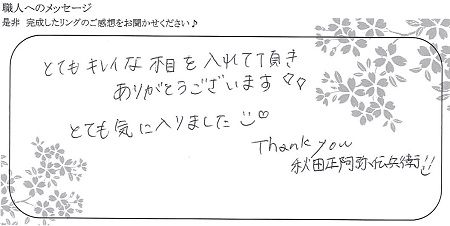 職人へのメッセージ
是非 完成したリングのご感想をお聞かせください♪
とてもキレイな木目を入れて頂き
ありがとうございます♡♡
とても気に入りました♡
Thank you
秋田正阿弥伝兵衛!!